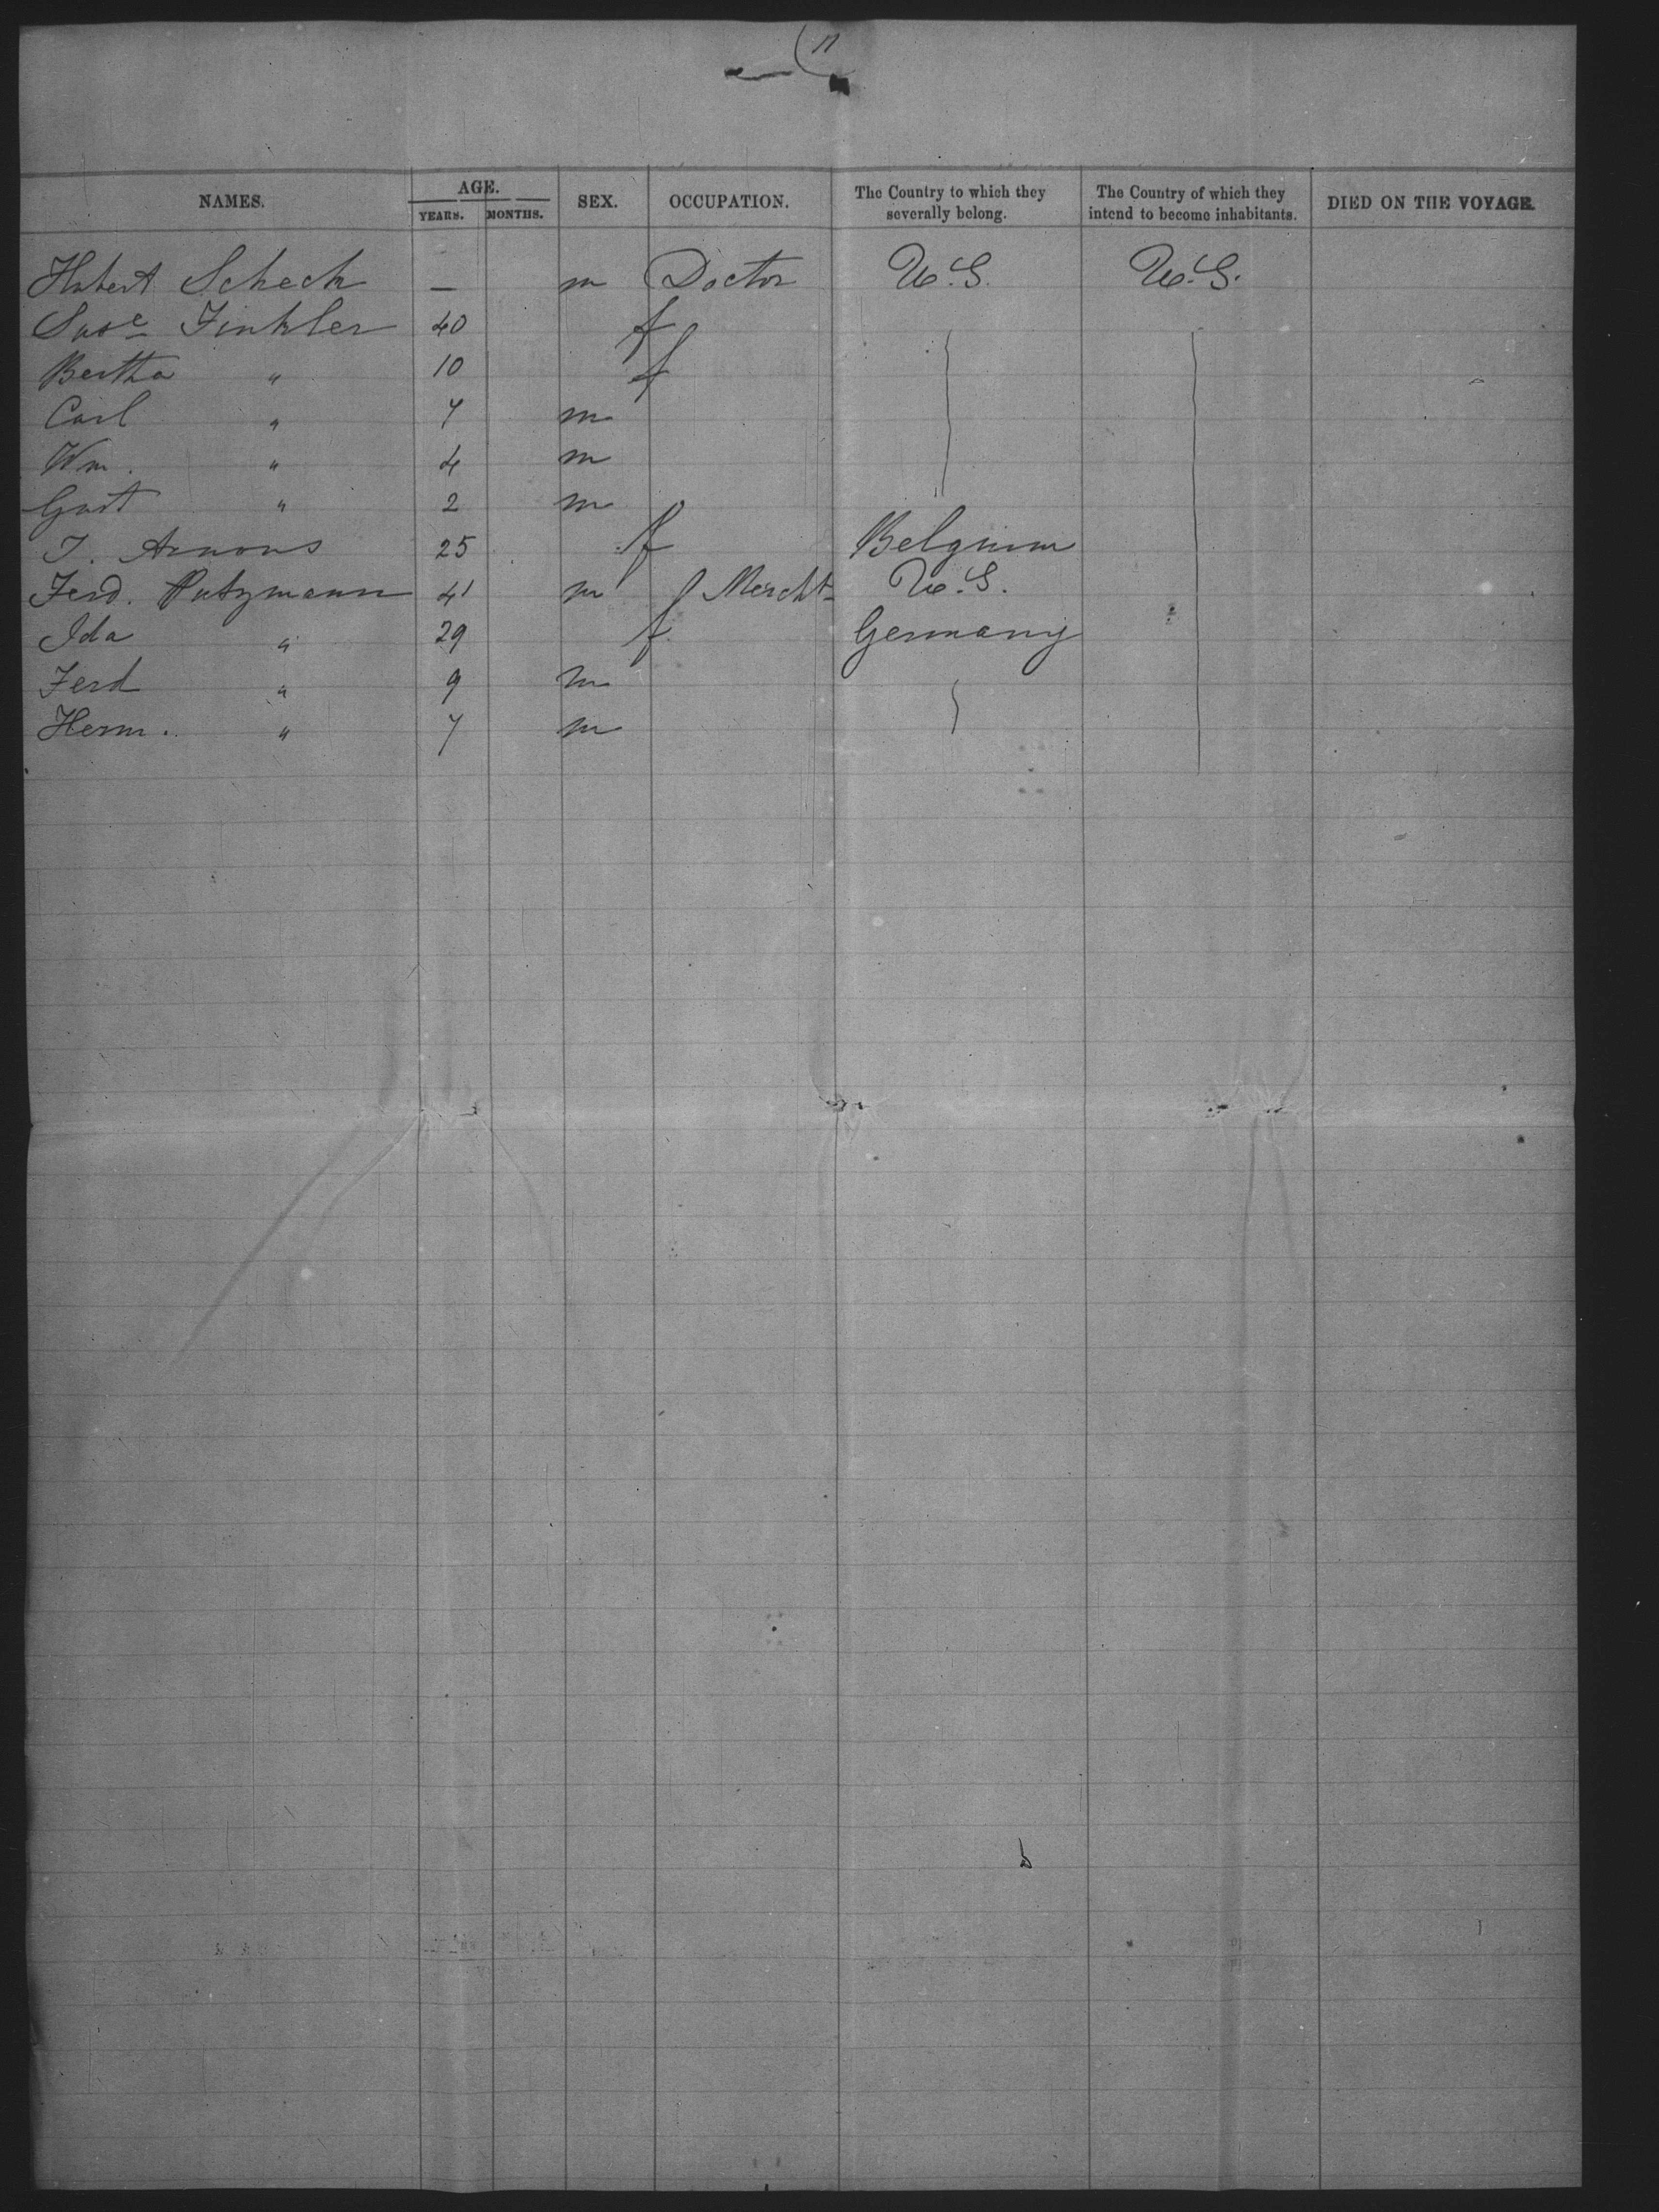 11
NAMES. AGE. YEARS. MONTHS. SEX. OCCUPATION. The Country to which they severally belong. The Country of which they intend to become inhabitants. DIED ON THE VOYAGE.
Hubert Scheck — m Doctor U.S. U.S.
Suse Finkler 40 f
Bertha " 10 f
Carl " 7 m
Wm. " 4 m
Gust " 2 m
25 f Belgium
Ferd. Putzmann 41 m Mercht U.S.
Ida " 29 f Germany
Ferd " 9 m
Herm. " 7 m